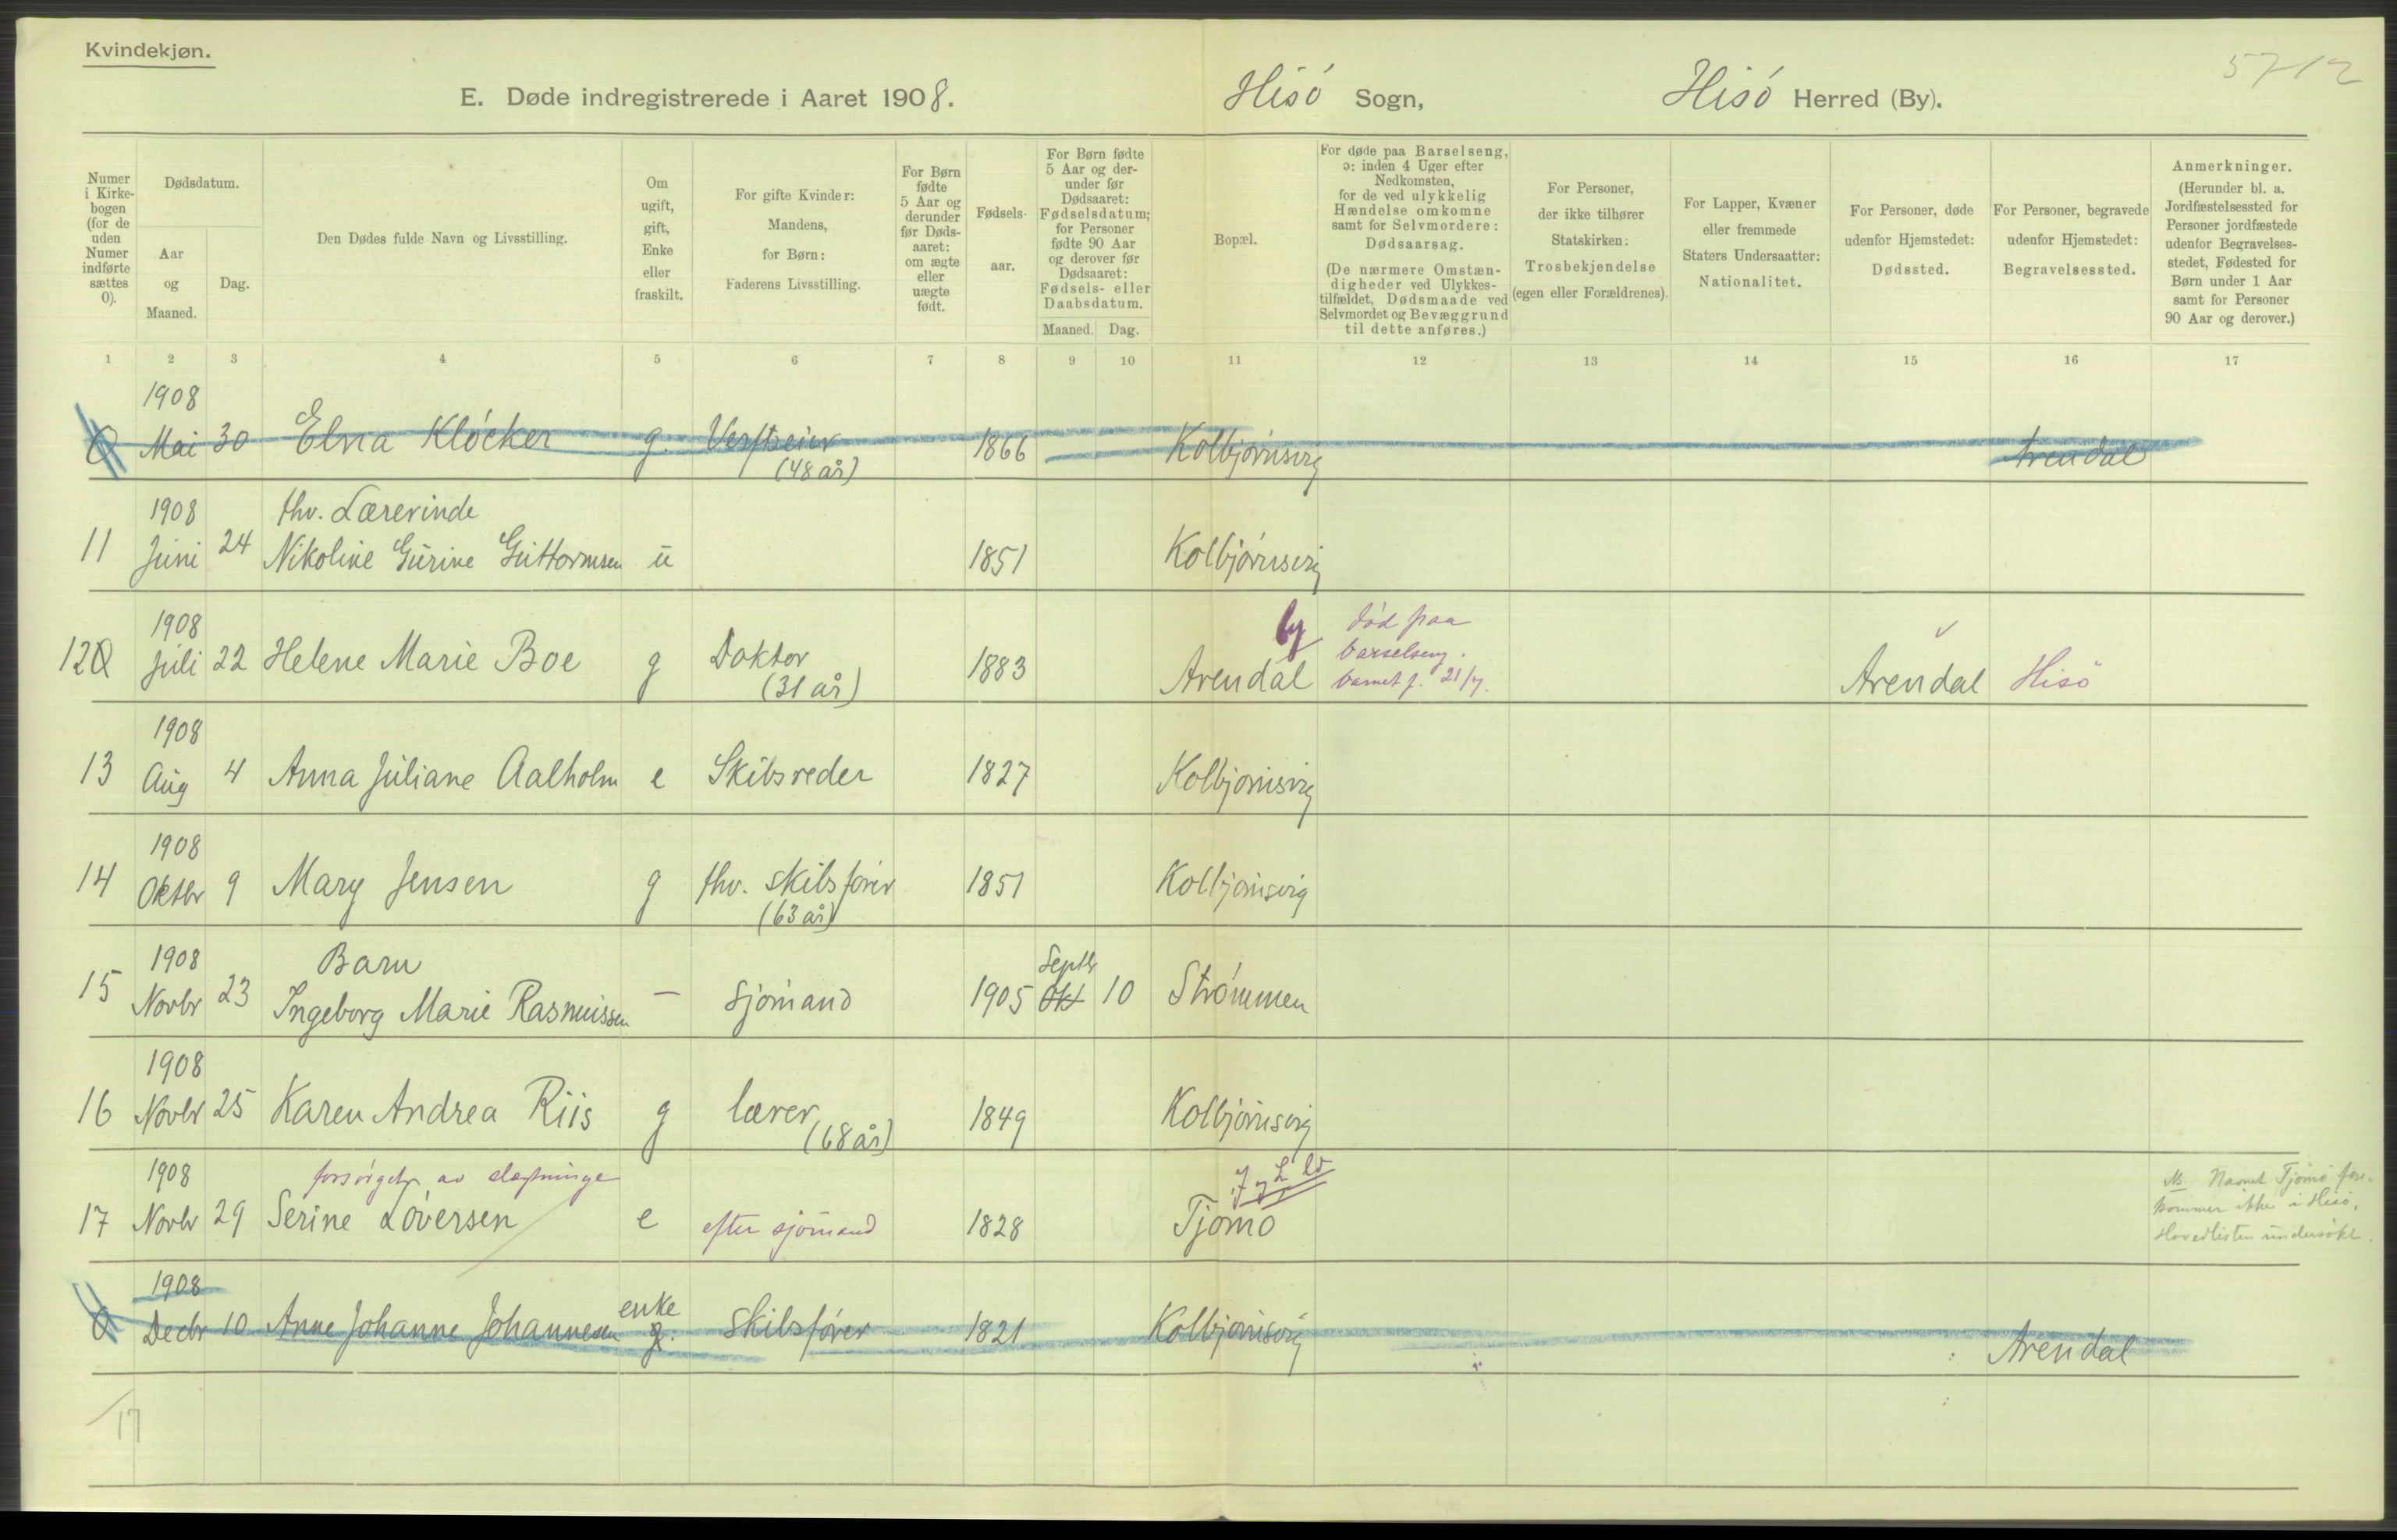 Kvindekjøn.
5712
E. Døde indregistrerede i Aaret 1908. Hisó Sogn, Hisó Herred (By).
Numer
i Kirke-
bogen
(for de
uden
Numer
indførte
sættes
0).
Dødsdatum.
Aar
og
Maaned.
Dag.
Den Dødes fulde Navn og Livsstilling.
Om
ugift,
gift,
Enke
eller
fraskilt.
For gifte Kvinder:
Mandens,
for Børn:
Faderens Livsstilling.
For Børn
fødte
5 Aar og
derunder
før Døds-
aaret:
om ægte
eller
uægte
født.
Fødsels-
aar.
For Børn fødte
5 Aar og der-
under før
Dødsaaret:
Fødselsdatum;
for Personer
fødte 90 Aar
og derover før
Dødsaaret:
Fødsels- eller
Daabsdatum.
Maaned. Dag.
Bopæl.
For døde paa Barselseng,
ɔ: inden 4 Uger efter
Nedkomsten,
for de ved ulykkelig
Hændelse omkomne
samt for Selvmordere:
Dødsaarsag.
(De nærmere Omstæn-
digheder ved Ulykkes-
tilfældet, Dødsmaade ved
Selvmordet og Bevæggrund
til dette anføres.)
For Personer,
der ikke tilhører
Statskirken:
Trosbekjendelse
(egen eller Forældrenes).
For Lapper, Kvæner
eller fremmede
Staters Undersaatter:
Nationalitet.
For Personer, døde
udenfor Hjemstedet:
Dødssted.
For Personer, begravede
udenfor Hjemstedet:
Begravelsessted.
Anmerkninger.
(Herunder bl. a.
Jordfæstelsessted for
Personer jordfæstede
udenfor Begravelses-
stedet, Fødested for
Børn under 1 Aar
samt for Personer
90 Aar og derover.)
1 2 3 4 5 6 7 8 9 10 11 12 13 14 15 16 17
1908
0 Mai 30 Elna Klócker g. Verftseier 1866 Kolbjórnsvig Arendal
(48 år)
1908 fhv. Lærerinde
11 Juni 24 Nikoline Gurine Guttormsen u 1851 Kolbjórnsvig
1908 by död paa
barselseng.
120 Juli 22 Helene Marie Boe g Doktor 1883 Arendal barnet f. 21/7. Arendal Hisö
(31 år)
1908
13 Aug 4 Anna Juliane Aalholm e Skibsreder 1827 Kolbjornsvig
1908
14 Oktbr 9 Mary Jensen g fhv. skibsfórer 1851 Kolbjornsvig
(63 år)
1908 Barn Septbr
15 Novbr 23 Ingeborg Marie Rasmussen — sjómand 1905 Okt 10 Strómmen
1908
16 Novbr 25 Karen Andrea Riis g lærer 1849 Kolbjórnsvig
(68 år)
1908 forsörget av slegtninge
17 Novbr 29 Serine Lóversen e efter sjömand 1828 Tjomo
Navnet Tjömö fore-
kommer ikke i Hisö,
Hovedlisten undersökt.
1908 enke
0 Decbr 10 Anne Johanne Johannesen g. skibsfórer 1821 Kolbjornsvig Arendal
17